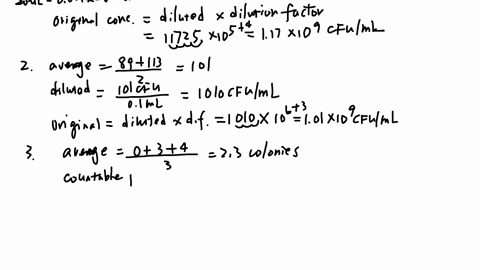 original conc. = diluted × dilution factor
= 11725 × 10^5+4 = 1.17 × 10^9 CFU/mL
2. average = 89+113 / 2 = 101
diluted = 101 CFU / 0.1 mL = 1010 CFU/mL
original = diluted × d.f. = 1010 × 10^6+3 = 1.01 × 10^9 CFU/mL
3. average = 0+3+4 / 3 = 2.3 colonies
countable